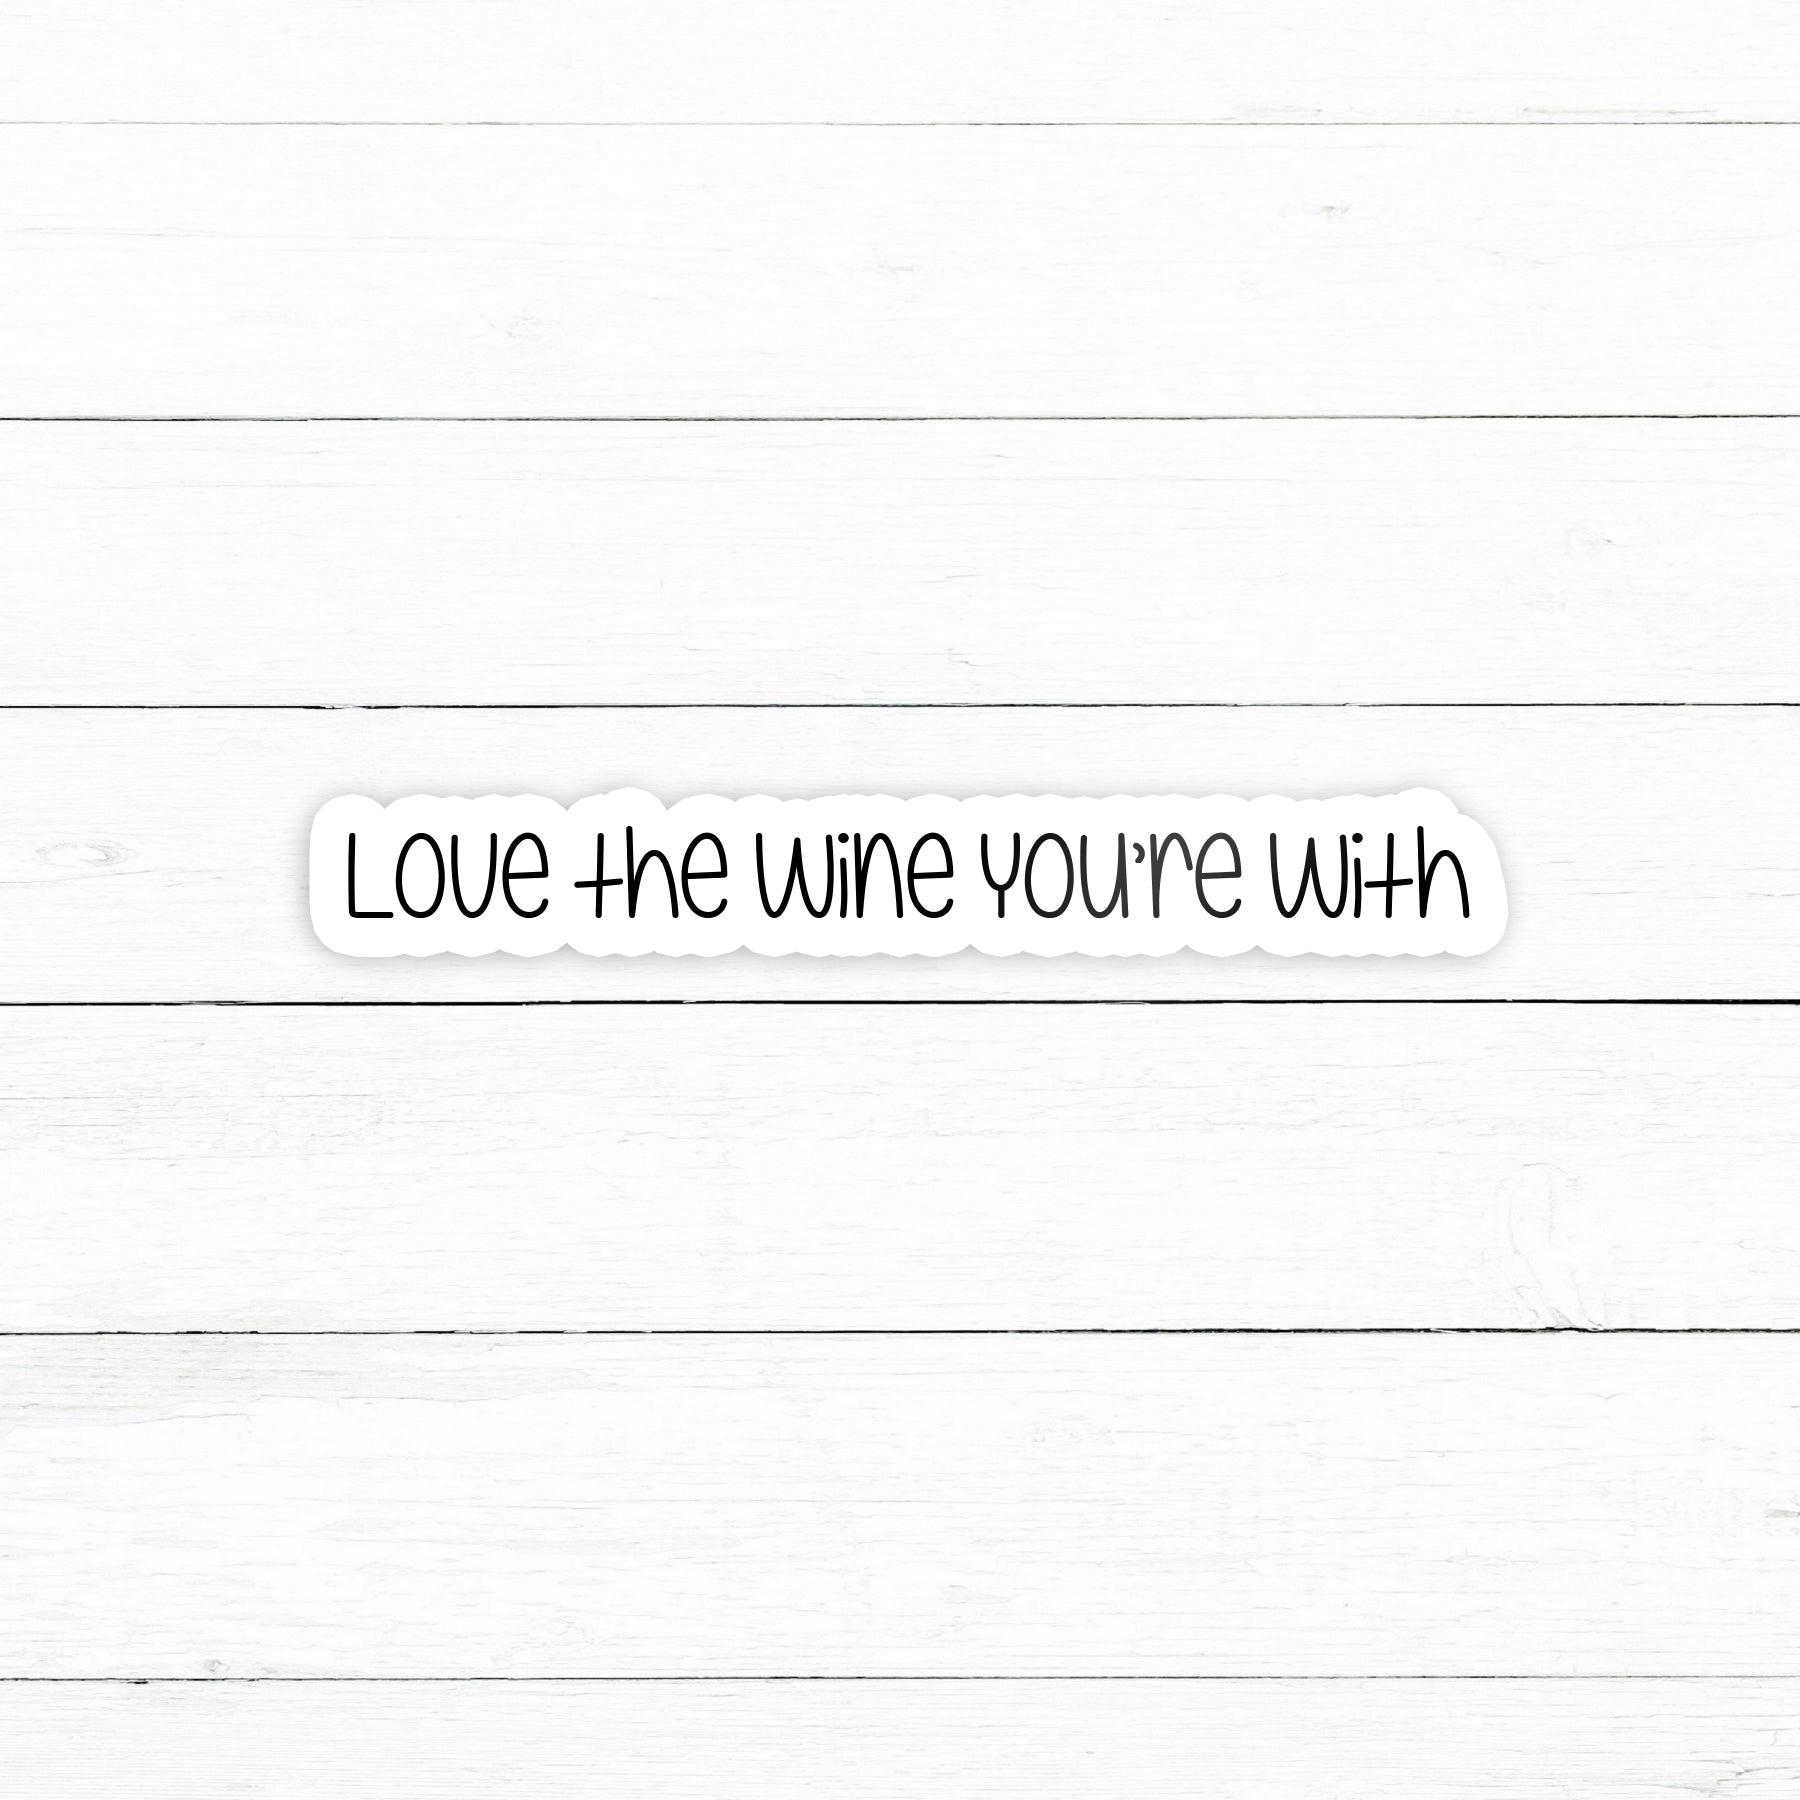 Love the Wine You're With